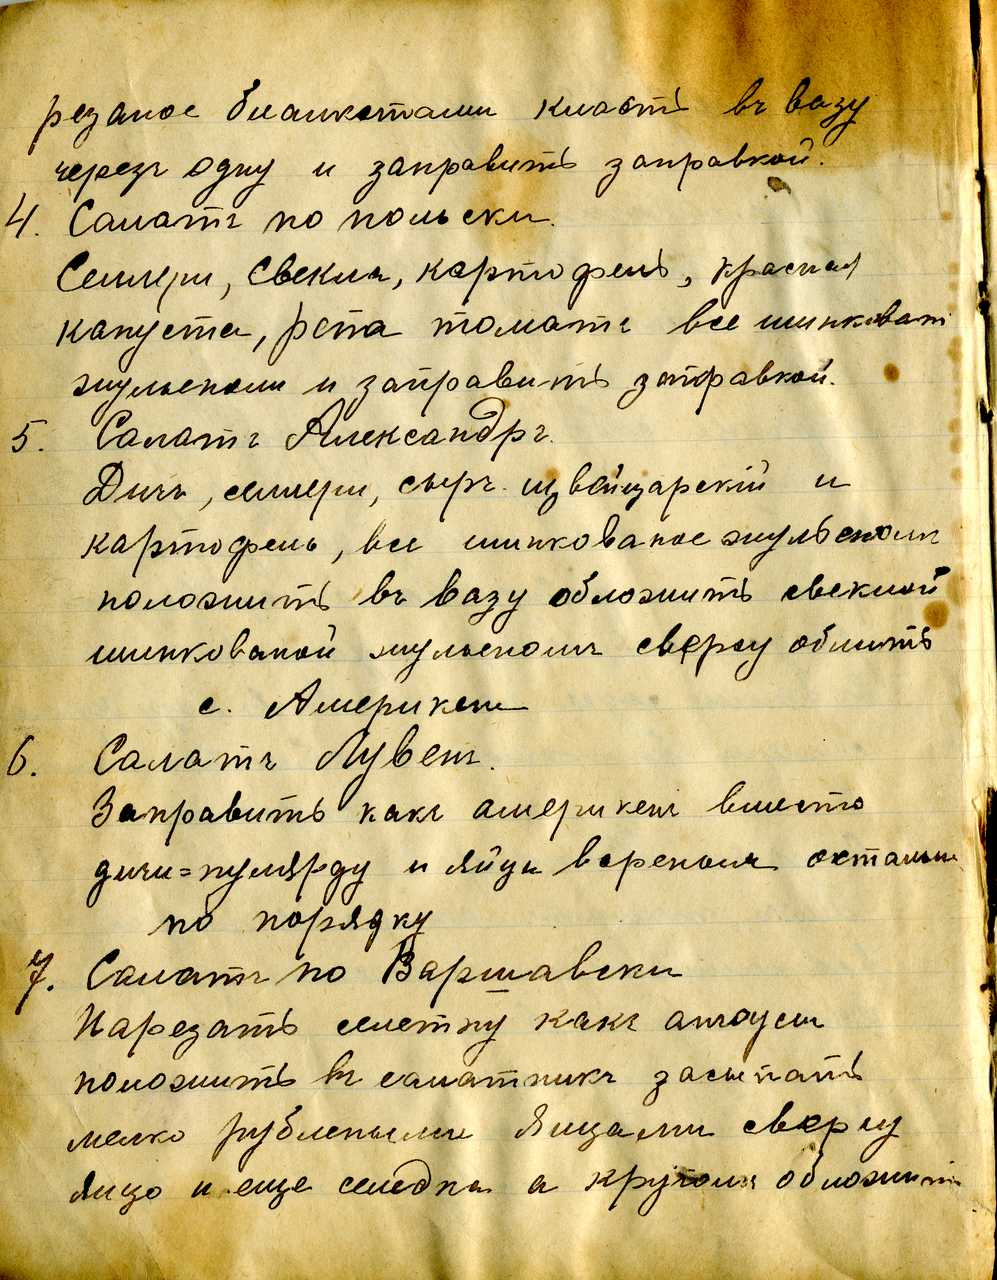 резаное бланкетами класть въ вазу
черезъ одну и заправить заправкой.
4. Салатъ по польски.
Селлери, свекла, картофель, красная
капуста, репа томатъ все шинковат
жульеномъ и заправить заправкой.
5. Салатъ Александръ.
Дичь, селлери, сыръ швейцарскій и
картофель, все шинкованое жульеномъ
положить въ вазу обложить свеклой
шинкованой жульеномъ сверху облить
с. Америкен
6. Салатъ Лувень.
Заправить какъ америкенъ вместо
дичи=пулярду и яйцы вареныя остальн
по порядку
7. Салатъ по Варшавски
Нарезать селетку какъ анчоусы
положить въ салатникъ засыпать
мелко рублеными яицами сверху
яицо и еще селедка а кругомъ обложить